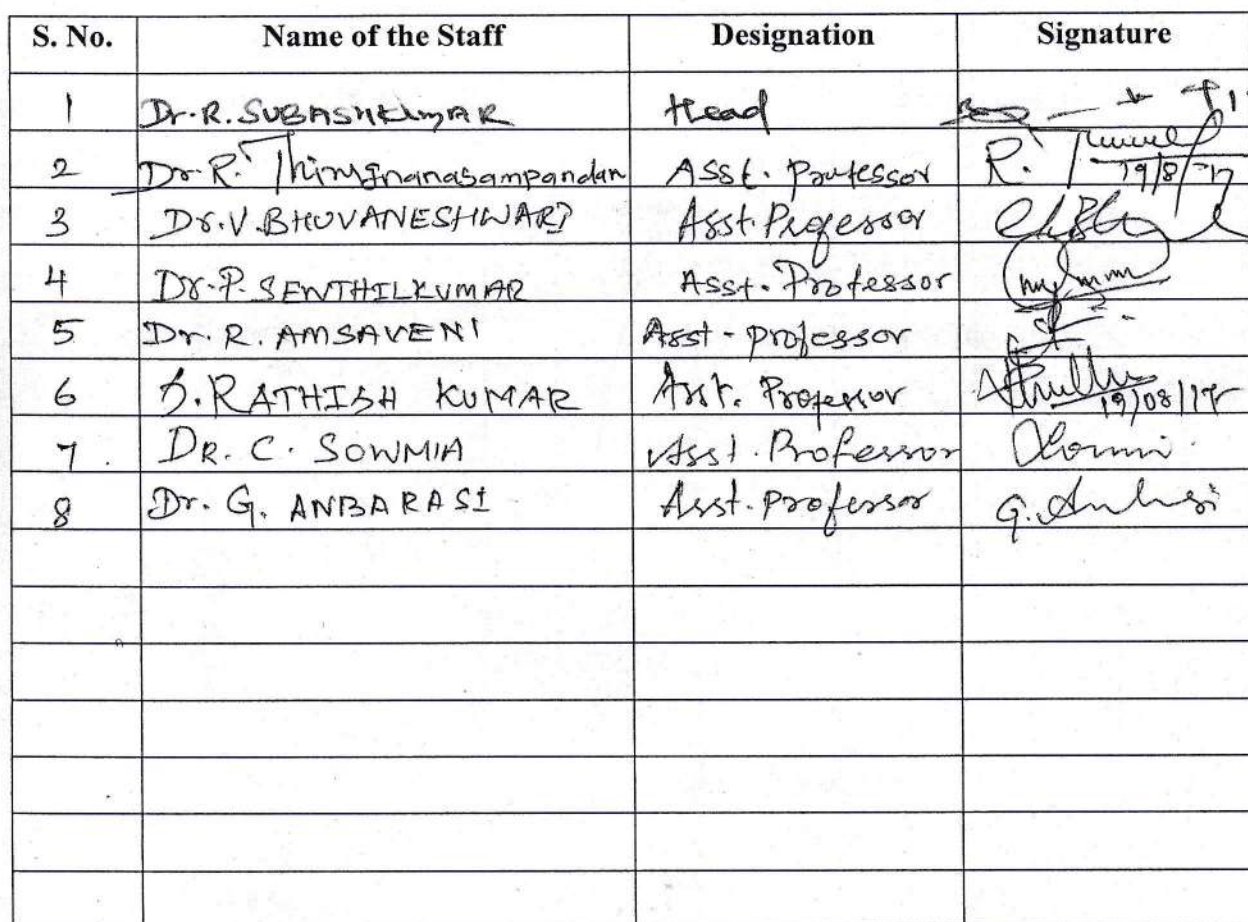 S. No. Name of the Staff Designation Signature
1 Dr. R. SUBASHKUMAR Head
2 Dr. R. Thirugnanasampandan Asst. Professor R. 19/8/17
3 Dr. V. BHUVANESHWARI Asst. Professor
4 Dr. P. SENTHILKUMAR Asst. Professor
5 Dr. R. AMSAVENI Asst. professor
6 S. RATHISH KUMAR Asst. Professor 19/08/17
7. DR. C. SOWMIA Asst. Professor
8 Dr. G. ANBARASI Asst. professor G. Anbarasi